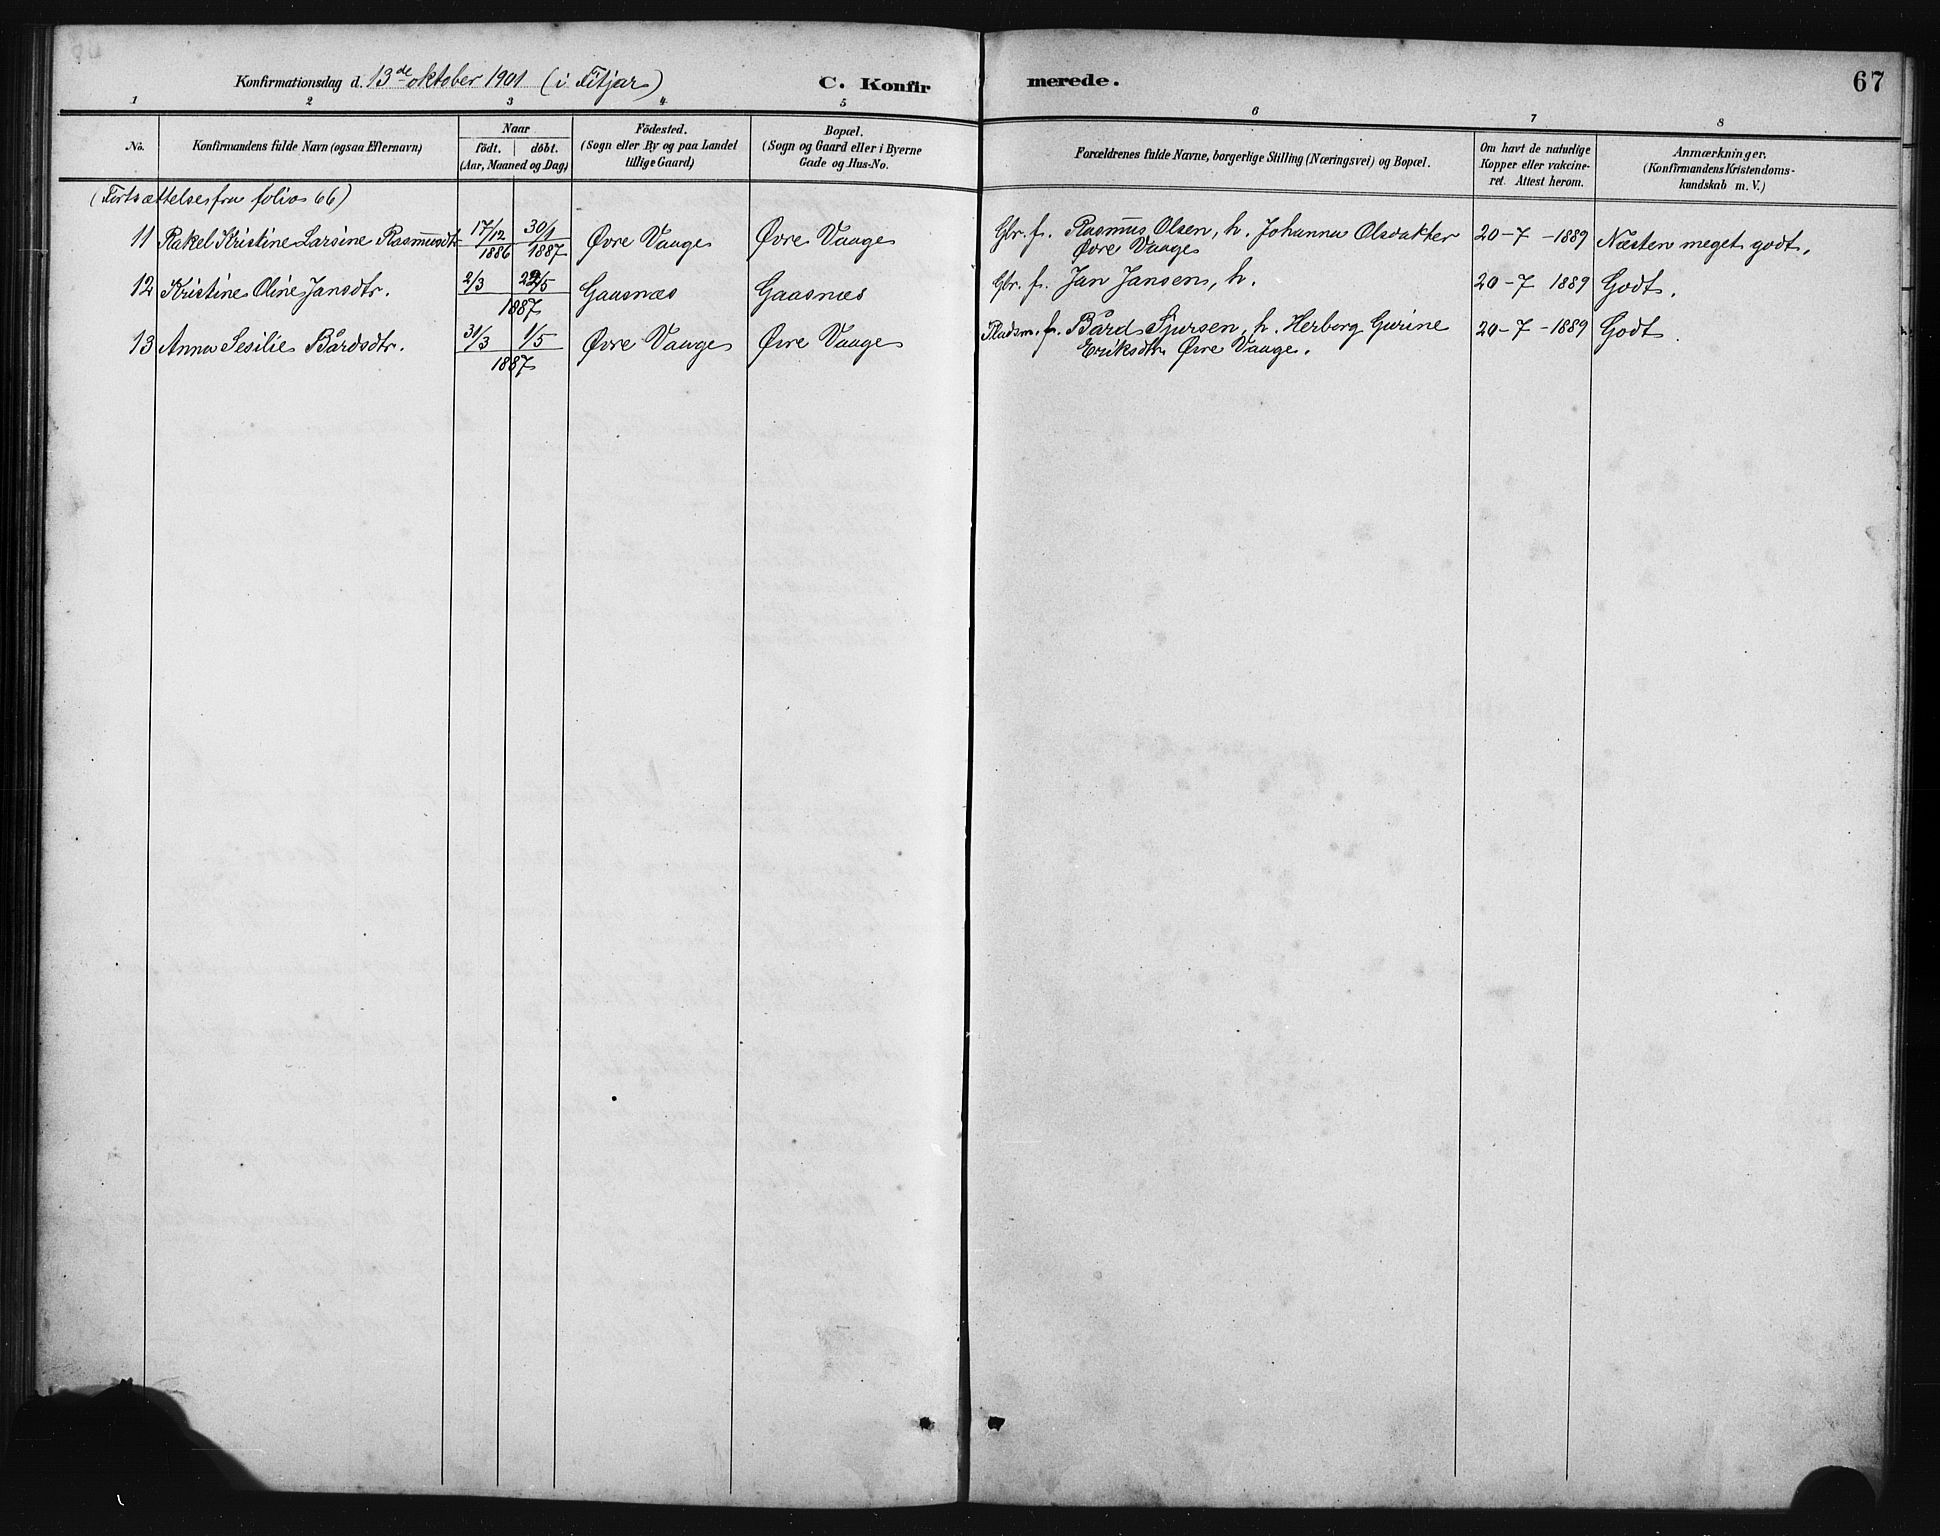 Konfirmationsdag d. 13de oktober 1901 (i Fitjar) C. Konfirmerede. 67
1 2 3 4 5 6 7 8
No.
Konfirmandens fulde Navn (ogsaa Efternavn)
Naar
födt. döbt.
(Aar, Maaned og Dag)
Födested.
(Sogn eller By og paa Landet
tillige Gaard)
Bopæl.
(Sogn og Gaard eller i Byerne
Gade og Hus-No.
Forældrenes fulde Navne, borgerlige Stilling (Næringsvei) og Bopæl.
Om havt de naturlige
Kopper eller vakcine-
ret. Attest herom.
Anmærkninger.
(Konfirmandens Kristendoms-
kundskab m. V.)
(Fortsættelse fra folio 66)
11 Rakel Kristine Larsine Rasmusdtr 17/12 1886 30/1 1887 Øvre Vaage Øvre Vaage Gbr. f. Rasmus Olsen, h. Johanna Olsdatter 20-7-1889 Næsten meget godt.
Øvre Vaage
12 Kristine Oline Jansdtr. 2/3 22/5 Gaasnæs Gaasnæs Gbr. f. Jan Jansen, h. 20-7 1889 Godt.
1887
13 Anna Sesilie Bårdsdtr. 31/3 1/5 Øvre Vaage Øvre Vaage Pladsm. f. Bård Sjursen, h. Herborg Gurine 20-7-1889 Godt.
1887 Eriksdtr. Øvre Vaage.